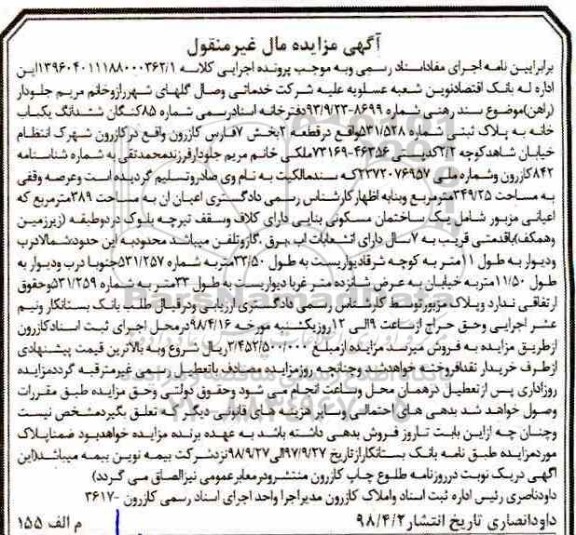 آگهی مزایده مال غیرمنقول
برابرآیین نامه اجرای مفاداسناد رسمی وبه موجب پرونده اجرایی کلاسه این
اداره له بانک اقتصادنوین شعبه عسلویه علیه شرکت خدماتی وصال گلهای شهررازوخانم مریم جلودار
(راهن)موضوع سند رهنی شماره ۸۶۹۹-۹۳/۹/۲۳دفترخانه اسنادرسمی شماره ۸۵کنگان ششدانگ یکباب
خانه به پلاک ثبتی شماره ۵۳۱/۵۲۸واقع درقطعه ۲بخش ۷فارس کازرون واقع درکازرون شهرک انتظام
خیابان شاهدکوچه ۲/۲کدپستی ۴۶۳۵۶-۷۳۱۶۹ملکی خانم مریم جلودارفرزندمحمدتقی به شماره شناسنامه
۸۴۲کازرون وشماره ملی ۲۳۷۲۰۷۶۹۵۷که سندمالکیت به نام وی صادروتسلیم گردیده است وعرصه وقفی
به مساحت ۳۴۹/۲۵مترمربع وبنابه اظهارکارشناس رسمی دادگستری اعیان ان به مساحت ۲۸۹مترمربع که
اعیانی مزبور شامل یک ساختمان مسکونی بنایی دارای کلاف وسقف تیرچه بلوک دردوطبقه (زیرزمین
وهمکف)باقدمتی قریب به ۷سال دارای انشعابات اب،برق ،گازوتلفن میباشد محدودبه این حدودشمالادرب
ودیوار به طول ۱۱متر به کوچه شرقادیواریست به طول ۳۳/۵۰متربه شماره ۵۳۱/۲۵۷جنوبا درب ودیوار به
طول ۱۱/۵۰متربه خیابان به عرض شانزده متر غربا دیواریست به طول ۳۳متر به شماره ۵۳۱/۲۵۹وحقوق
ارتفاقی ندارد وپلاک مزبورتوسط کارشناس رسمی دادگستری ارزیابی ودرقبال طلب بانک بستانکار ونیم
عشر اجرایی وحق حراج ازساعت ۹الی ۱۲روزیکشنبه مورخه ۹۸/۴/۱۶درمحل اجرای ثبت اسنادکازرون
ازطریق مزایده به فروش میرسد مزایده ازمبلغ ۳/۴۵۲/۵۰۰/۰۰۰ریال شروع وبه بالاترین قیمت پیشنهادی
ازطرف خریدار نقدافروخته خواهدشد وچنانچه روزمزایده مصادف باتعطیل رسمی غیرمترقبه گرددمزایده
روزاداری پس ازتعطیل درهمان محل وساعت انجام می شود وحقوق دولتی وحق مزایده طبق مقررات
وصول خواهد شد بدهی های احتمالی وسایر هزینه های قانونی دیگر که تعلق بگیردمشخص نیست
وچنان چه ازاین بابت تاروز فروش بدهی داشته باشد به عهده برنده مزایده خواهدبود ضمناپلاک
موردمزایده طبق نامه بانک بستانکارازتاریخ ۹۷/۹/۲۷الی۹۸/۹/۲۷نزدشرکت بیمه نوین بیمه میباشد(این
اگهی دریک نوبت درروزنامه طلوع چاپ کازرون منتشرودرمعابرعمومی نیزالصاق می گردد)
داودناصری رئیس اداره ثبت اسناد واملاک کازرون مدیراجرا واحد اجرای اسناد رسمی کازرون -۳۶۱۷
داودانصاری تاریخ انتشار۹۸/۴/۲
م الف ۱۵۵